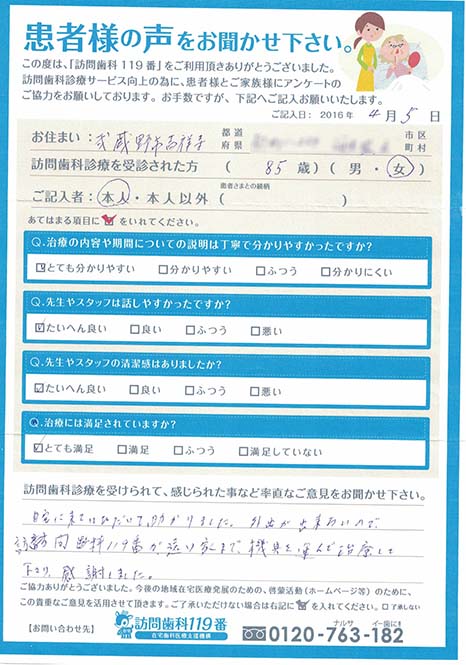 患者様の声をお聞かせ下さい。
この度は、「訪問歯科119番」をご利用頂きありがとうございました。
訪問歯科診療サービス向上の為に、患者様とご家族様にアンケートの
ご協力をお願いしております。お手数ですが、下記へご記入お願いいたします。
ご記入日：2016年 4月 5日
お住まい： 武蔵野市吉祥寺 都道府県 市区町村
訪問歯科診療を受診された方 （ 85 歳）（ 男・女 ）
ご記入者：（ 本人・本人以外（ 患者さまとの続柄 ）
あてはまる項目に✓をいれてください。
Q.治療の内容や期間についての説明は丁寧で分かりやすかったですか？
☑とても分かりやすい □分かりやすい □ふつう □分かりにくい
Q.先生やスタッフは話しやすかったですか？
☑たいへん良い □良い □ふつう □悪い
Q.先生やスタッフの清潔感はありましたか？
☑たいへん良い □良い □ふつう □悪い
Q.治療には満足されていますか？
☑とても満足 □満足 □ふつう □満足していない
訪問歯科診療を受けられて、感じられた事など率直なご意見をお聞かせ下さい。
自宅に来ていただいて助かりました。外出が出来ないので
訪問歯科119番が遠い家まで機具を運んで治療して
下さり、感謝しました。
ご協力ありがとうございました。今後の地域在宅医療発展のための、啓蒙活動（ホームページ等）のために、
この貴重なご意見を活用させて頂きます。ご了承いただけない場合は右記に✓を入れてください。□了承しない
【お問い合わせ先】 訪問歯科119番 ナルサ イー歯に!
在宅歯科医療支援機構 0120-763-182